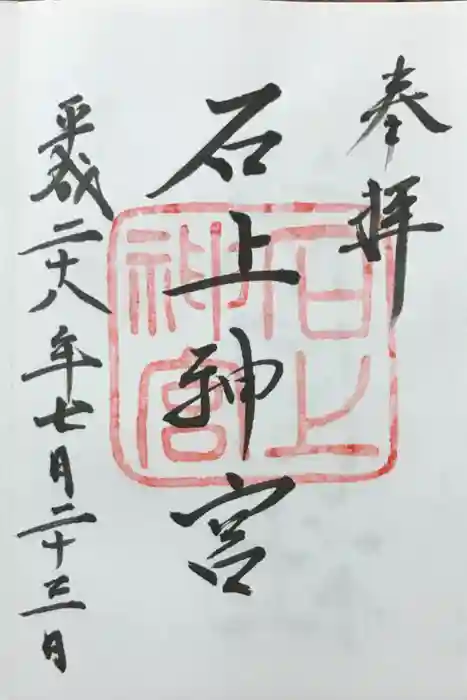 奉拝
石上神宮
平成二十八年七月二十三日
石上
神宮